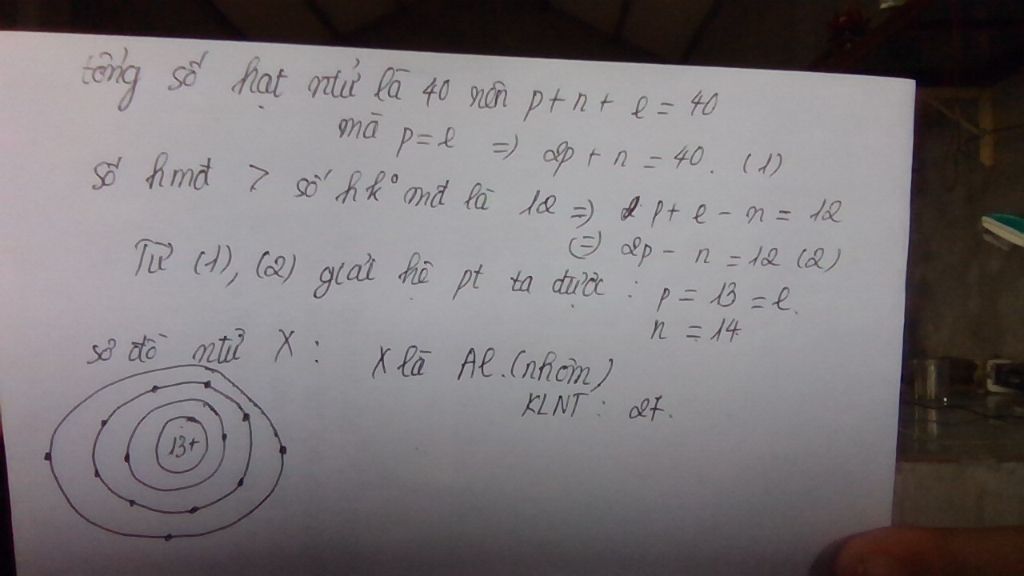 tổng số hạt ntử là 40 nên p + n + e = 40
mà p = e => 2p + n = 40. (1)
số hmđ > số hk° mđ là 12 => p + e - n = 12
(=) 2p - n = 12 (2)
Từ (1), (2) giải hệ pt ta được : p = 13 = e.
n = 14
sơ đồ ntử X : X là Al. (nhôm)
KLNT : 27.
13+